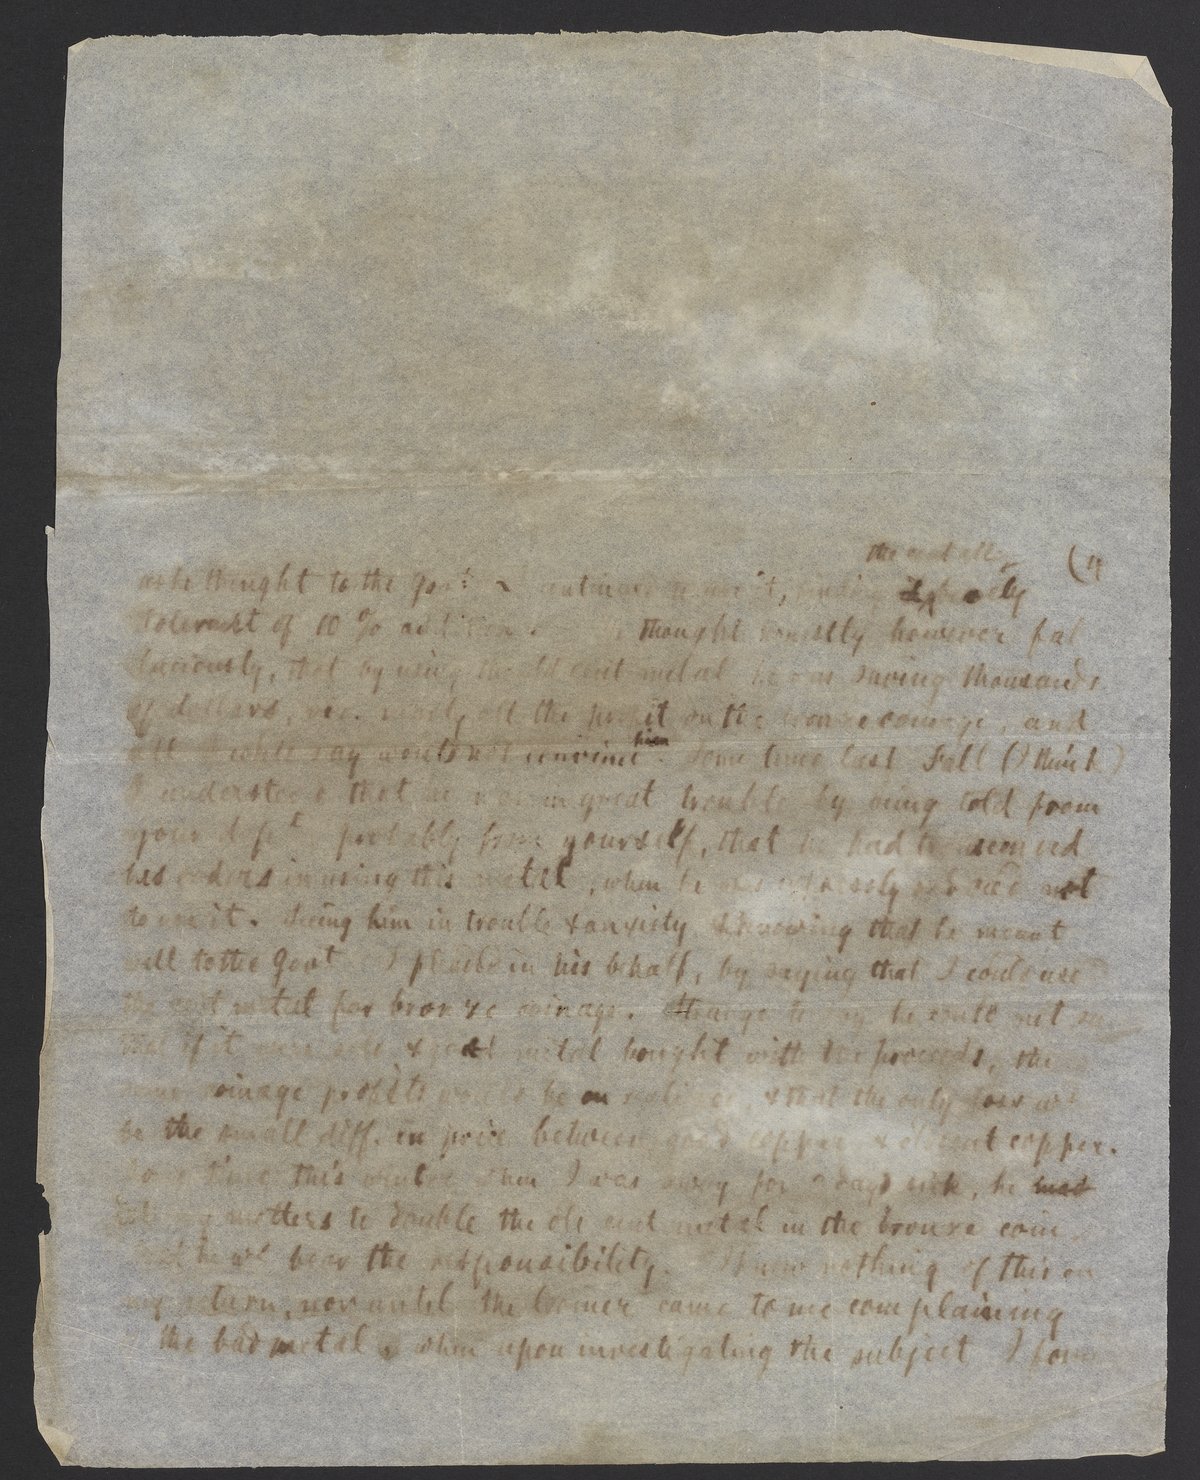 the metal (4
as he thought to the Gov.t & continued to use it, finding
tolerant of 10 % addition. He thought honestly however fal
laciously, that by using the old cent metal he was saving thousands
of dollars, viz. nearly all the profit on the bronze coinage, and
all I could say would not convince him. Some time last Fall (I think)
I understood that he was in great trouble by being told from
your dept probably from yourself, that he had
his orders in using this metal, when he was expressly ordered not
to use it. Seeing him in trouble & anxiety & knowing that he meant
well to the Govt I plead in his behalf, by saying that I could use
the cent metal for bronze coinage. Strange to say he could not see
that if it were sold & good metal bought with the proceeds, the
same coinage profits would be realized, & that the only loss wd
be the small diff. in price between good copper & old cent copper.
Some time this winter when I was away for days sick, he
melters to double the old cent metal in the bronze coin
he wd bear the responsibility. I knew nothing of this on
my return, nor until the Coiner came to me complaining
the bad metal & when upon investigating the subject I